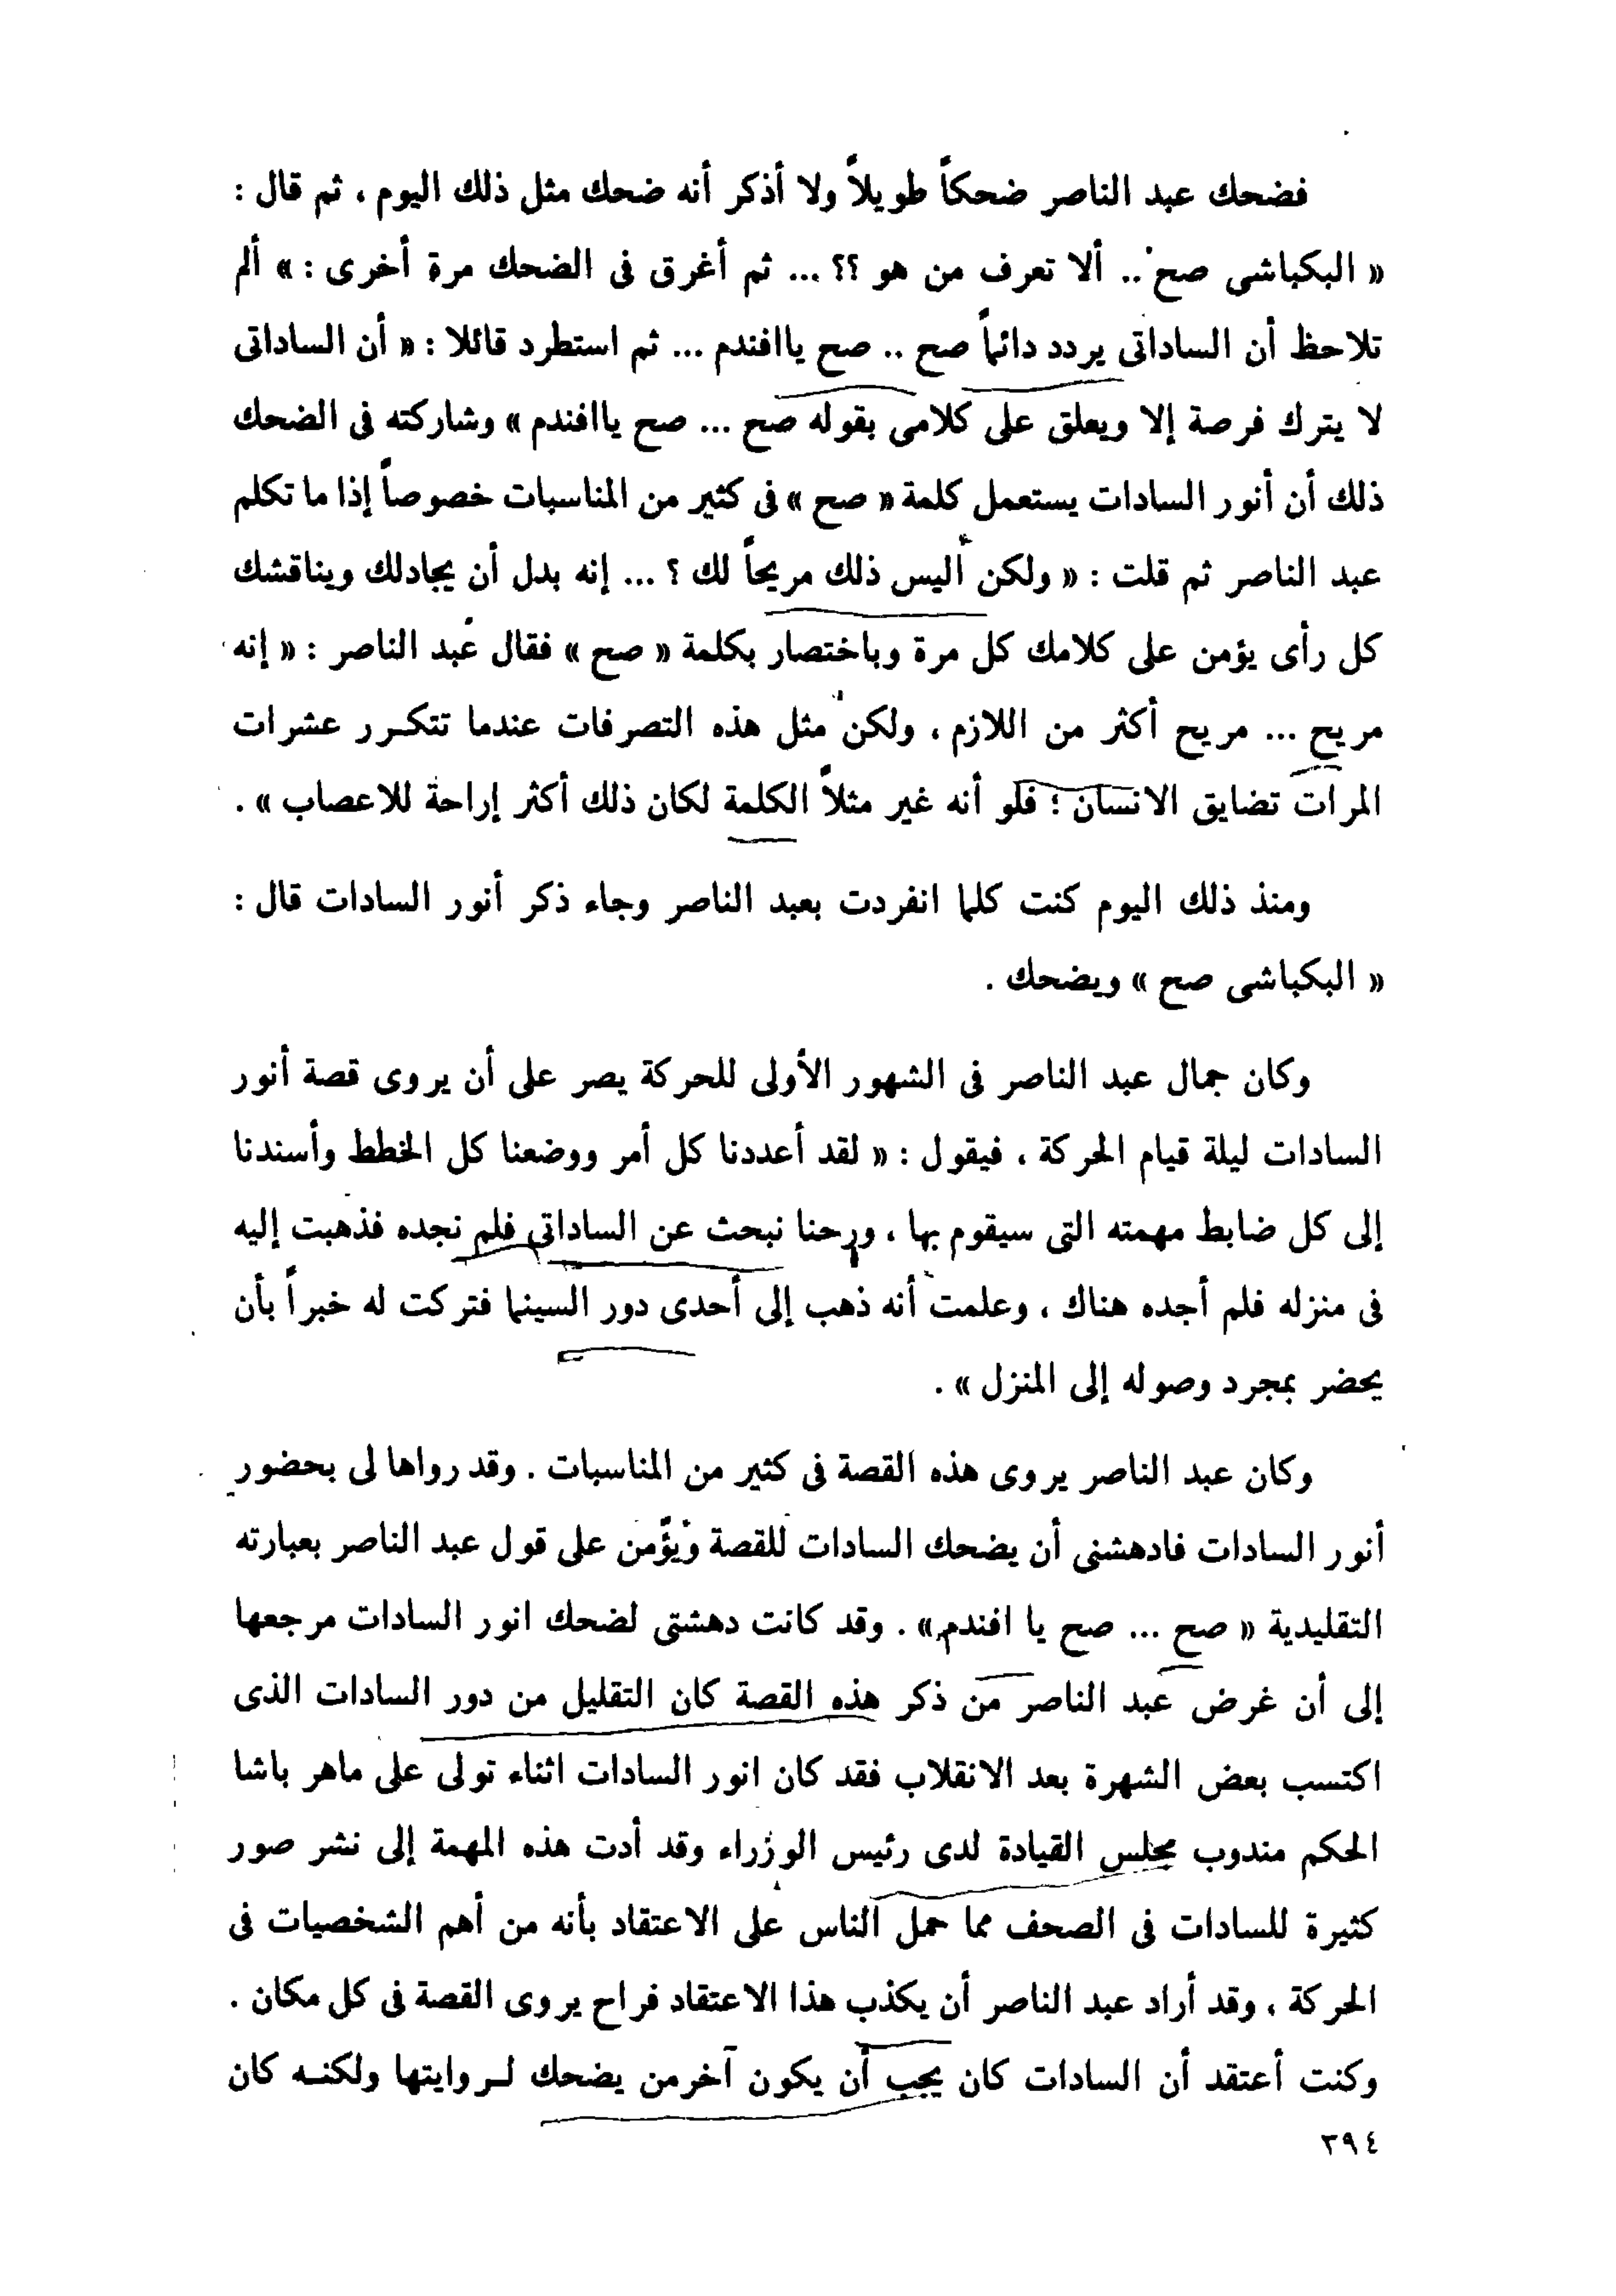 فضحك عبد الناصر ضحكاً طويلاً ولا أذكر أنه ضحك مثل ذلك اليوم ، ثم قال :
« البكباشى صح .. ألا تعرف من هو ؟؟ ... ثم أغرق فى الضحك مرة أخرى : » ألم
تلاحظ أن الساداتى يردد دائماً صح .. صح ياافندم ... ثم استطرد قائلا : « أن الساداتى
لا يترك فرصة إلا ويعلق على كلامى بقوله صح ... صح ياافندم » وشاركته فى الضحك
ذلك أن أنور السادات يستعمل كلمة « صح » فى كثير من المناسبات خصوصاً إذا ما تكلم
عبد الناصر ثم قلت : « ولكن أليس ذلك مريحاً لك ؟ ... إنه بدل أن يجادلك ويناقشك
كل رأى يؤمن على كلامك كل مرة وباختصار بكلمة « صح » فقال عبد الناصر : « إنه
مريح ... مريح أكثر من اللازم ، ولكن مثل هذه التصرفات عندما تتكرر عشرات
المرات تضايق الانسان ؛ فلو أنه غير مثلاً الكلمة لكان ذلك أكثر إراحة للاعصاب » .
ومنذ ذلك اليوم كنت كلما انفردت بعبد الناصر وجاء ذكر أنور السادات قال :
« البكباشى صح » ويضحك .
وكان جمال عبد الناصر فى الشهور الأولى للحركة يصر على أن يروى قصة أنور
السادات ليلة قيام الحركة ، فيقول : « لقد أعددنا كل أمر ووضعنا كل الخطط وأسندنا
إلى كل ضابط مهمته التى سيقوم بها ، ورحنا نبحث عن الساداتى فلم نجده فذهبت إليه
فى منزله فلم أجده هناك ، وعلمت أنه ذهب إلى أحدى دور السينما فتركت له خبراً بأن
يحضر بمجرد وصوله إلى المنزل » .
وكان عبد الناصر يروى هذه القصة فى كثير من المناسبات . وقد رواها لى بحضور
أنور السادات فادهشنى أن يضحك السادات للقصة ويؤمن على قول عبد الناصر بعبارته
التقليدية « صح ... صح يا افندم » . وقد كانت دهشتى لضحك انور السادات مرجعها
إلى أن غرض عبد الناصر من ذكر هذه القصة كان التقليل من دور السادات الذى
اكتسب بعض الشهرة بعد الانقلاب فقد كان انور السادات اثناء تولى على ماهر باشا
الحكم مندوب مجلس القيادة لدى رئيس الوزراء وقد أدت هذه المهمة إلى نشر صور
كثيرة للسادات فى الصحف مما حمل الناس على الاعتقاد بأنه من أهم الشخصيات فى
الحركة ، وقد أراد عبد الناصر أن يكذب هذا الاعتقاد فراح يروى القصة فى كل مكان .
وكنت أعتقد أن السادات كان يجب أن يكون آخرمن يضحك لروايتها ولكنه كان
٣٩٤